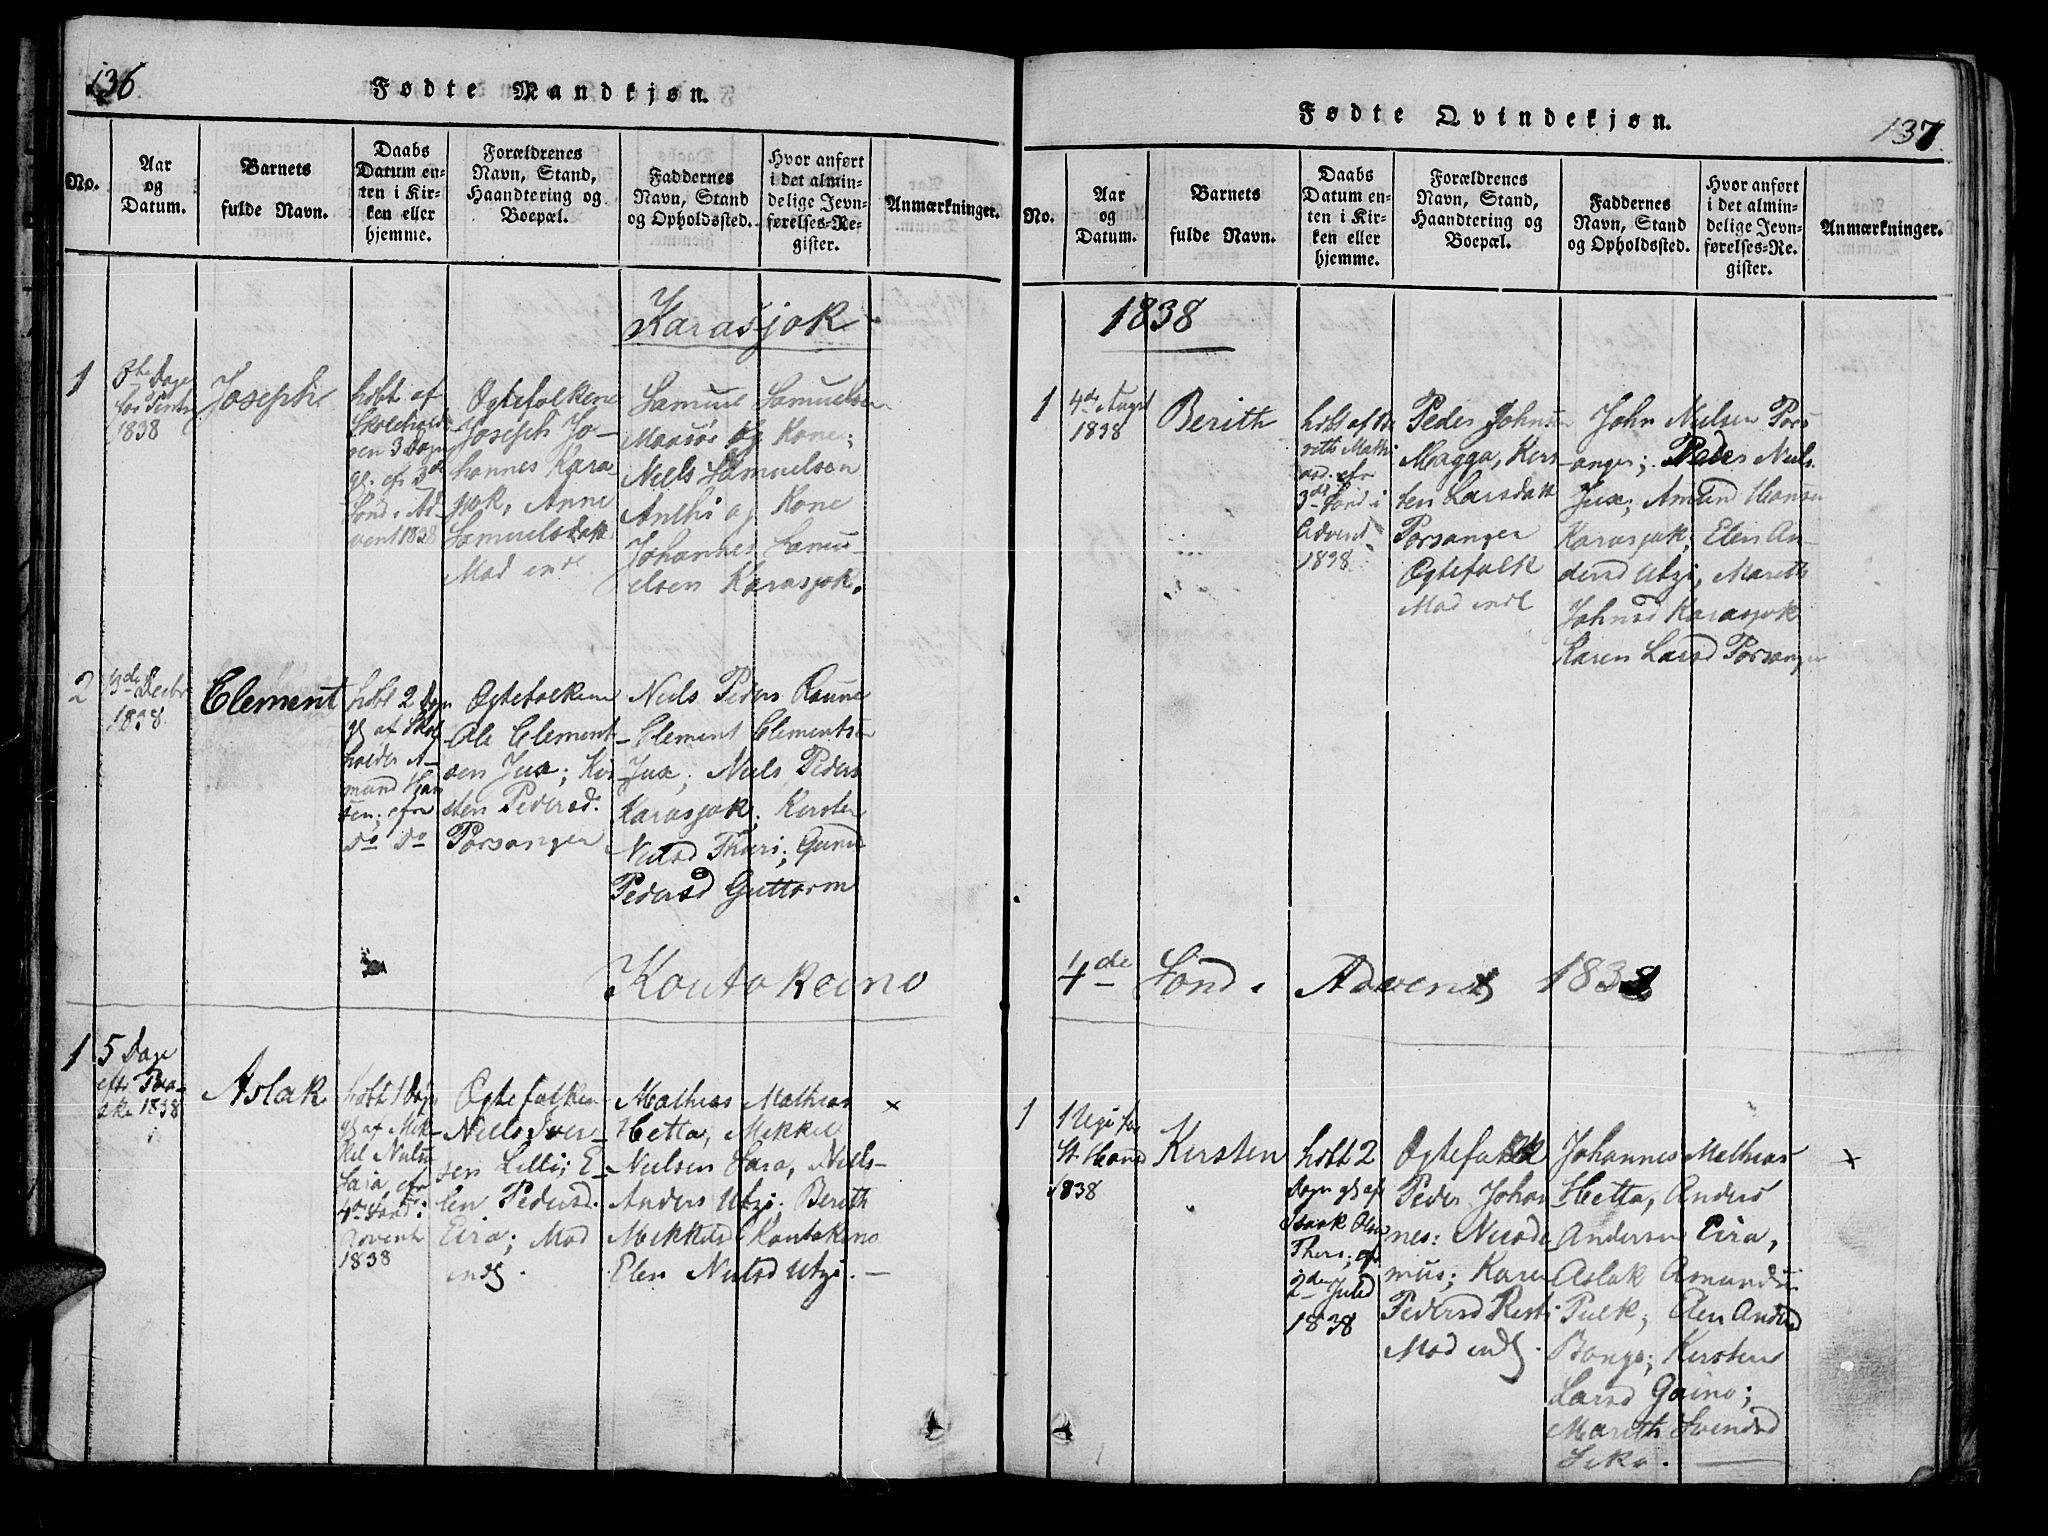 136
Fødte Mandkjøn.
No.
Aar
og
Datum.
Barnets
fulde Navn.
Daabs
Datum en-
ten i Kir-
ken eller
hjemme.
Forældrenes
Navn, Stand,
Haandtering og
Boepæl.
Faddernes
Navn, Stand
og Opholdssted.
Hvor anført
i det almin-
delige Jevn-
førelses-Re-
gister.
Anmærkninger.
Karasjok
1
Dage
1838
Joseph
høbt af
3 Dage
gl. efr 3de
Sönd i Ad-
vent 1838
Ogtefolkene
Joseph Jo-
hannes Kara
sjok, Anne
Samuelsdatt
Mad inde
Samuel Samuelsen
og Kone;
Niels Samuelsen
Anthi og Kone
Johannes Samu-
elsen Karasjok.
2
3de Decbr
1838
Clement
høbt 2 Dage
gl af Skol
holder A-
mund Han
sen; efr
do do
Ogtefolkene
Ole Clement-
sen Jux; Kir-
sten Pedersd.
Porsanger
Niels Peders
Clement Clementsen
Jux; Niels Peders
Karasjok; Kirsten
Nielsd Thuri; Guni
Pedersd Guttorm
Koutokeino
1
5 Dage
eftr Paa-
ske 1838
Aslak
høbt 1 Dag
gl af Mik-
kel Nielsen
Sara efr
4de Sönd i
Advent
1838
Ogtefolkene
Niels Iver-
sen Lilli; E-
len Pedersd.
Eira; Mod
indl.
Mathias Mathias
Hetta, Mikkel
Nielsen Sara, Niels
Anders Utzi; Berith
Mikkelsd Koutokeino
Elen Nielsd Utzi. —
×
137
Fødte Qvindekjøn.
No.
Aar
og
Datum.
Barnets
fulde Navn.
Daabs
Datum en-
ten i Kir-
ken eller
hjemme.
Forældrenes
Navn, Stand,
Haandtering og
Boepæl.
Faddernes
Navn, Stand
og Opholdssted.
Hvor anført
i det almin-
delige Jevn-
førelses-Re-
gister.
Anmærkninger.
1838
1
4de August
1838
Berith
høbt af Be
rith Math
efr
3de Sönd i
Advent
1838
Peder Johnsen
Magga, Kirs-
ten Larsdatt
Porsanger
Ogtefolk
Mod indl
John Nielsen Pors
anger; Peder Niels.
Jux; Amund Hansen
Karasjok, Elen An-
dersd Utzi, Mareth
Johnsd Karasjok
Karen Larsd Porsanger
4de Sönd i Advent 1838
1
1 Uge før
St. Hansd
1838
Kirsten
høbt 2
Dage gl af
Isaak Olsen
Thers; efr
2den Juled
1838
Ogtefolk
Peder Johan
nes: Niesde
mus; Karen
Pedersd
Mod indl.
Johannes Mathias
Hetta, Anders
Andersen Eira,
Aslak Amundsen
Pulk; Elen Andersd
Bango; Kirsten
Larsd Gaino;
Mareth Svendsd
Siko. —
×